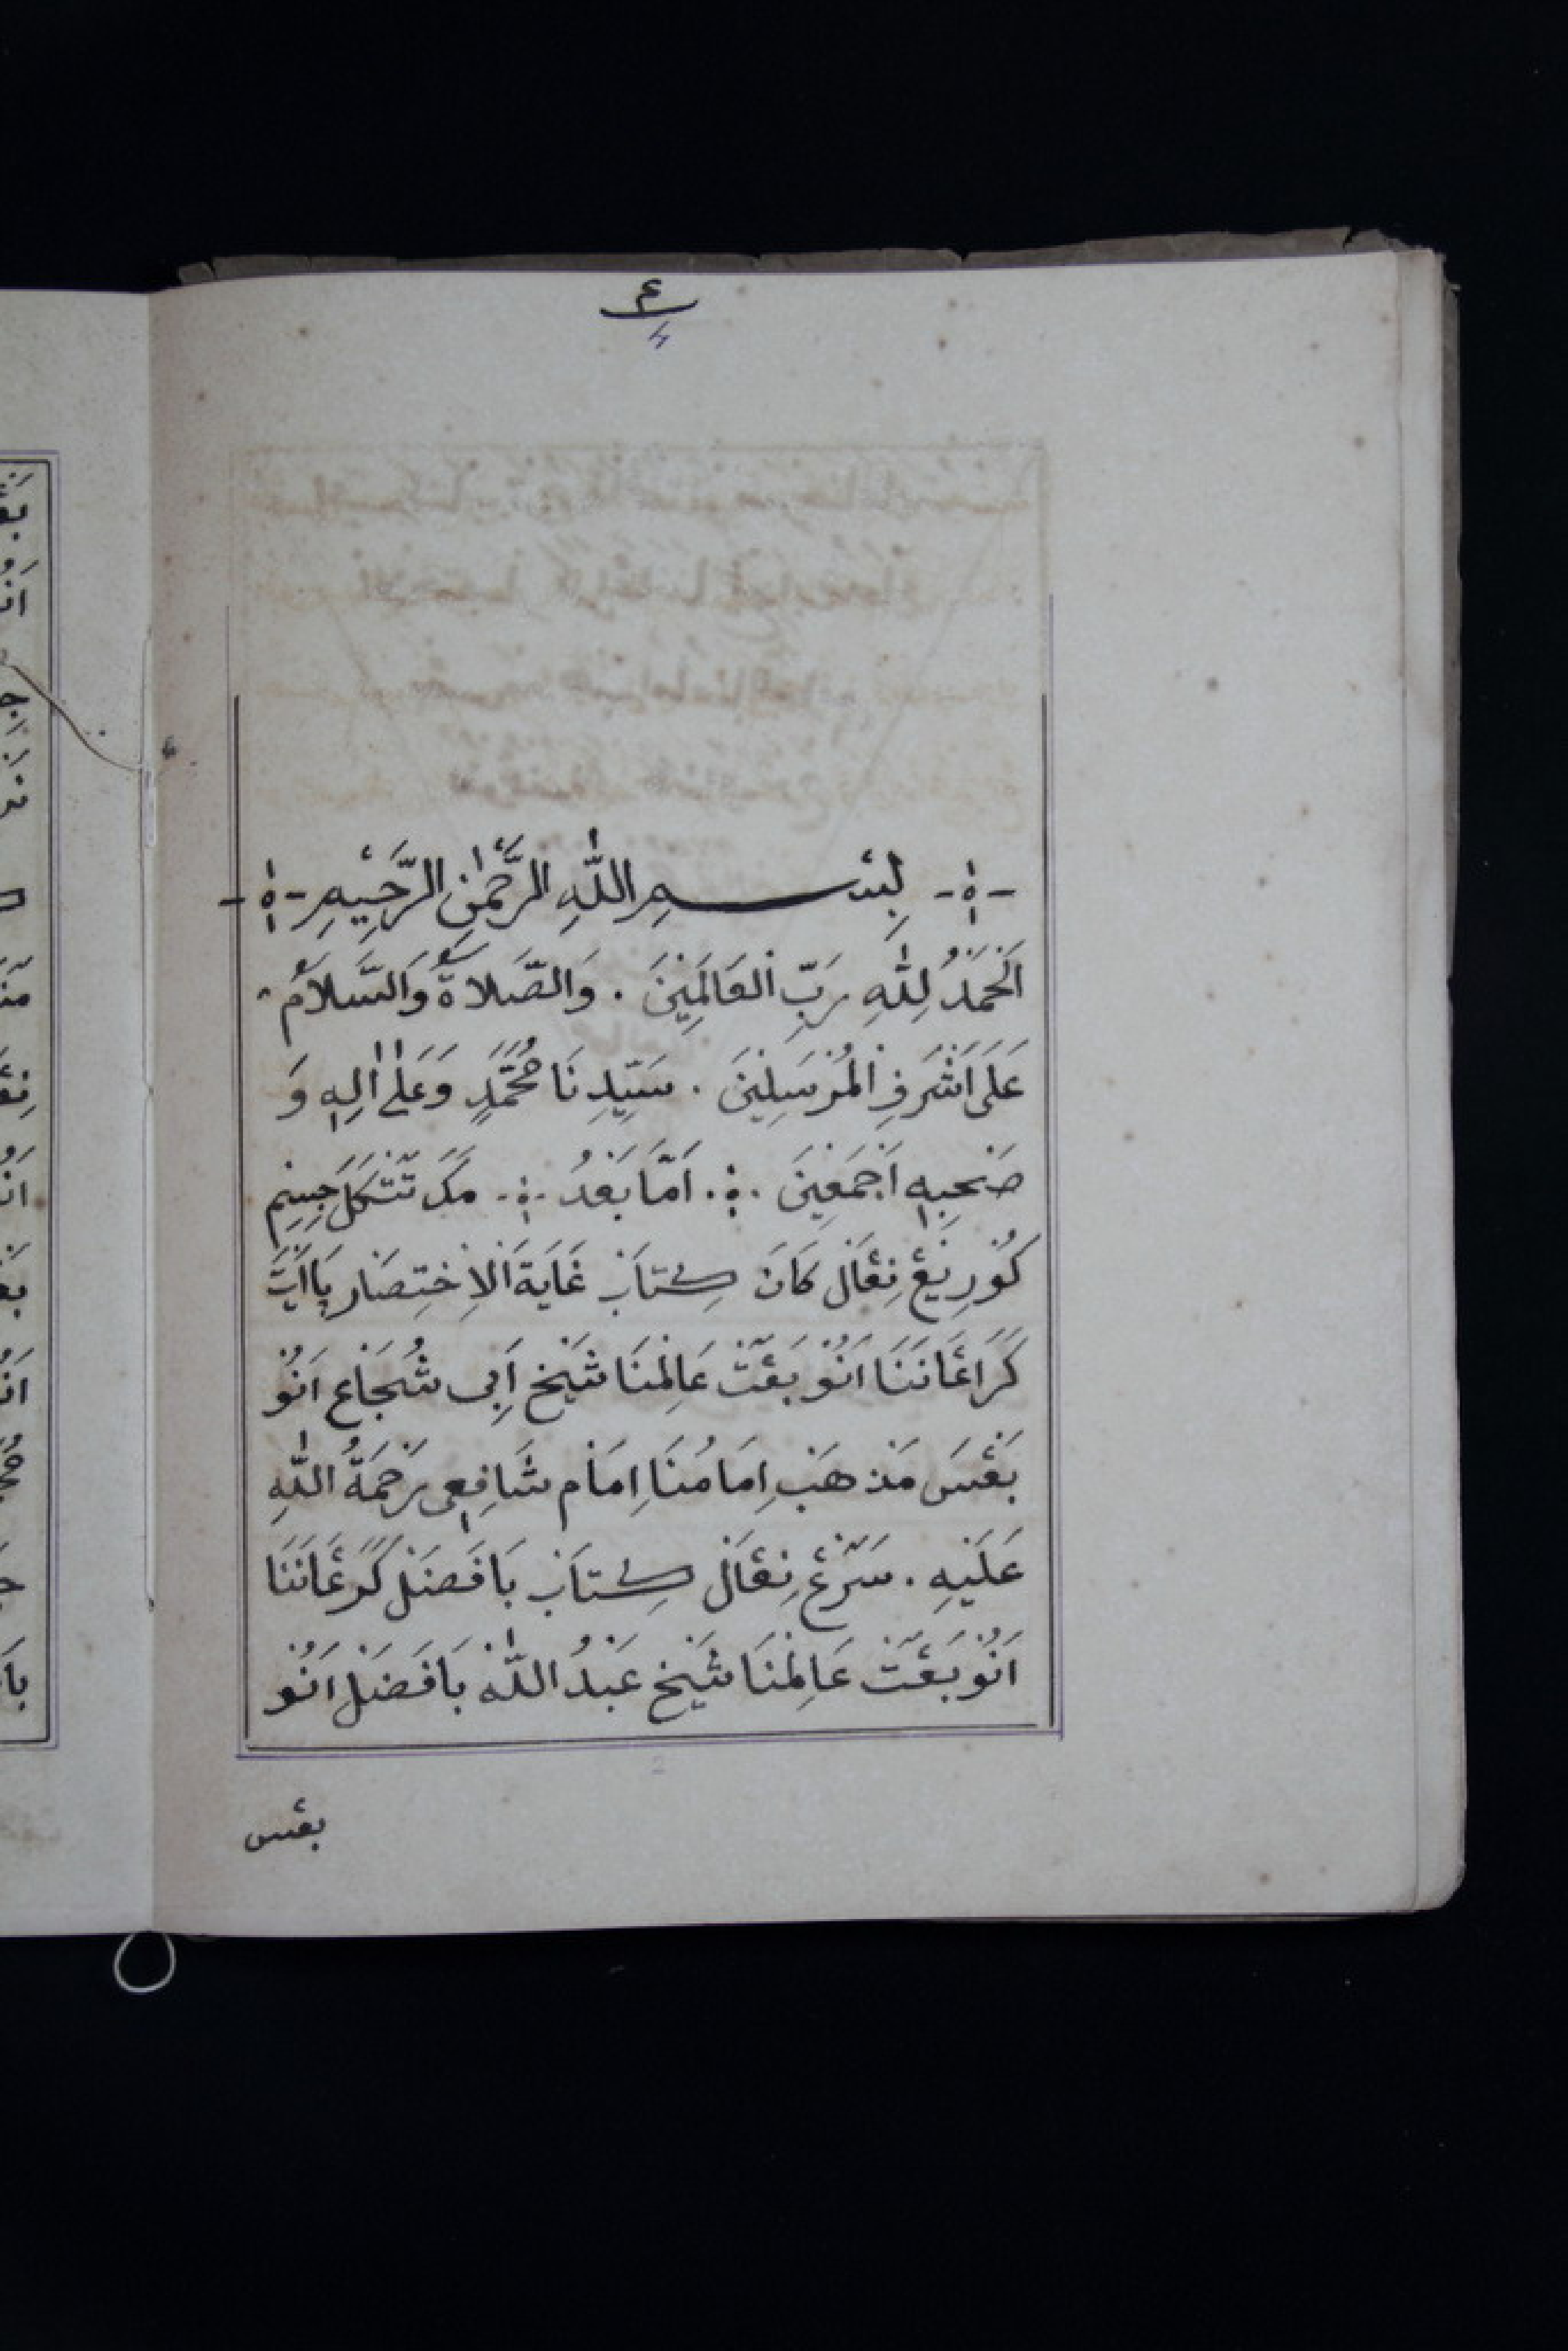 ٤
4
بِسْمِ اللّٰهِ الرَّحْمٰنِ الرَّحِيْمِ
اَلْحَمْدُ لِلّٰهِ رَبِّ الْعَالَمِيْنَ . وَالصَّلَاةُ وَالسَّلَامُ
عَلَى اَشْرَفِ الْمُرْسَلِيْنَ . سَيِّدِنَا مُحَمَّدٍ وَعَلٰى اٰلِهٖ وَ
صَحْبِهٖ اَجْمَعِيْنَ . اَمَّا بَعْدُ . مَكَ تَتْكَلَ جِسِمْ
كُوْرِيْڠْ نِڠْاَلْ كَانَ كِتَابْ غَايَةْ اَلْاِخْتِصَارْ يَاَاِيْتَ
كَرَاڠَانَنَا اَنُوْ بَڠَتْ عَالِمْنَا شَيْخ اَبِى شُجَاعْ اَنُوْ
بَڠْسَ مَذْهَبْ اِمَامُنَا اِمَامْ شَافِعِى رَحْمَةُ اللّٰهِ
عَلَيْهِ . سَرْڠْ نِڠْاَلْ كِتَابْ بَافَضَلْ كَرَڠَانَنَا
اَنُوْ بَڠَتْ عَالِمْنَا شَيْخ عَبْدُ اللّٰهْ بَافَضَلْ اَنُوْ
بڠس